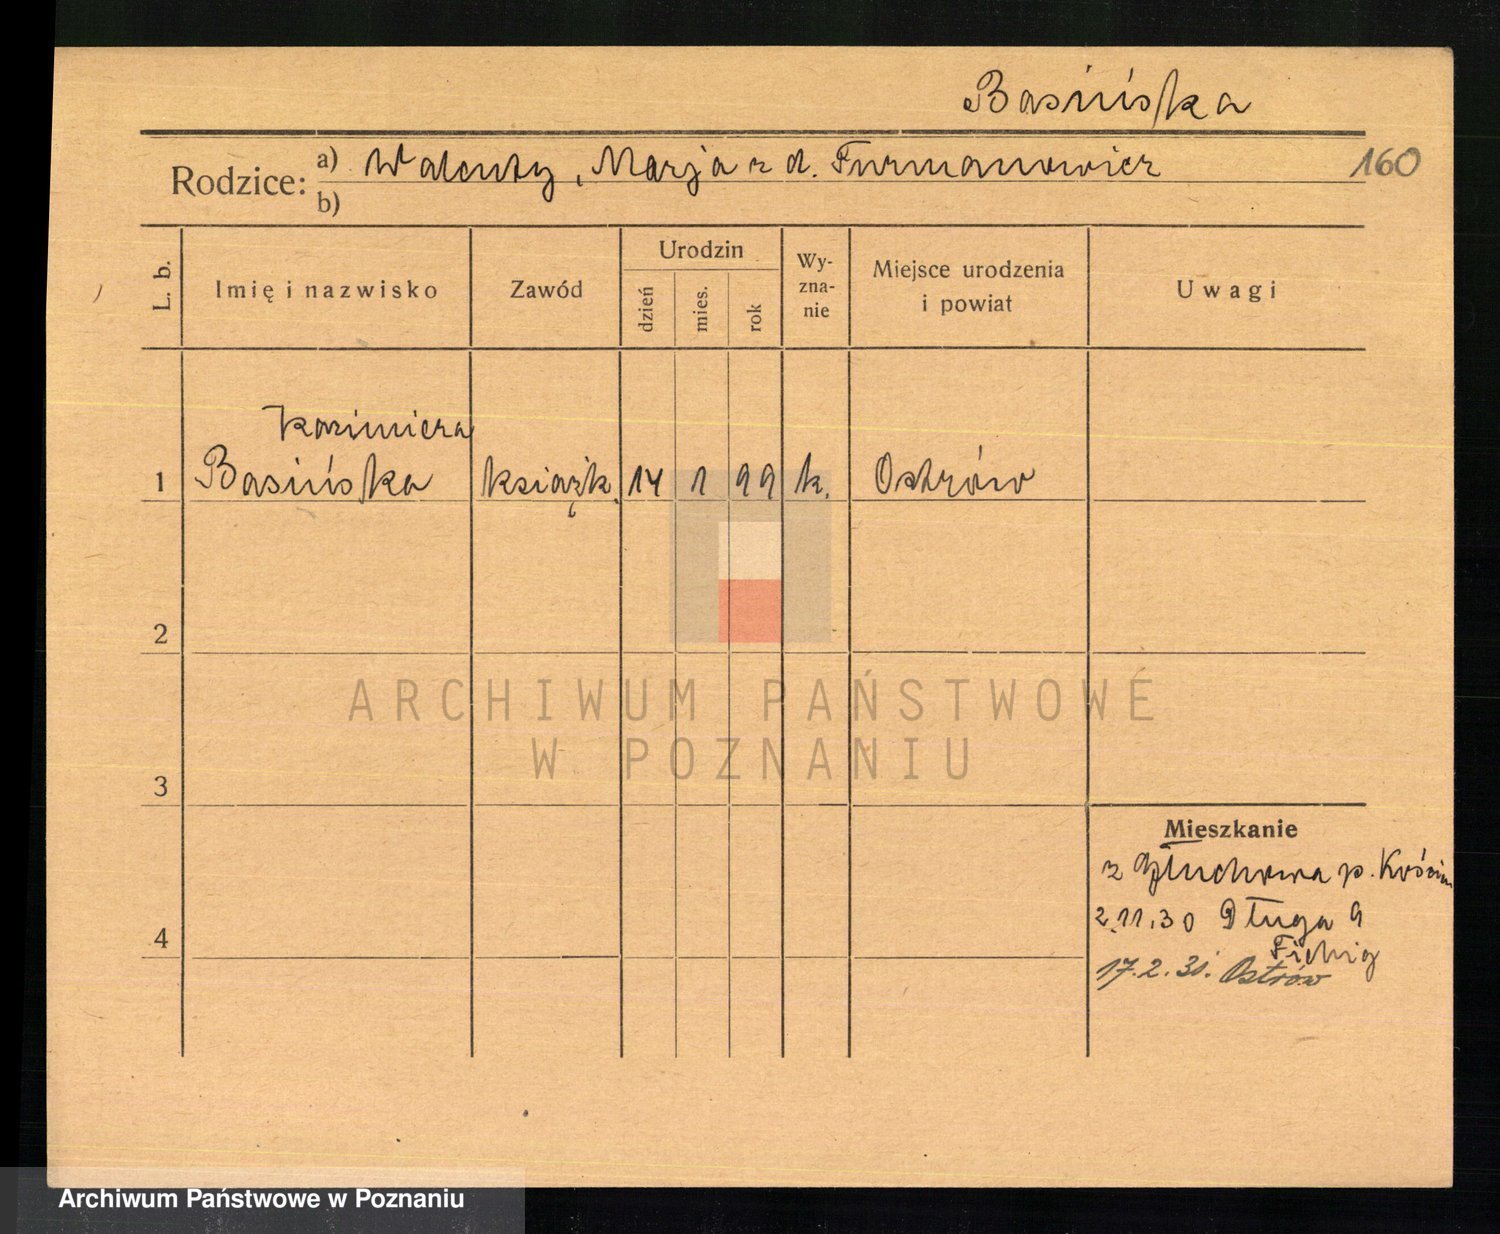 Basińska
160
Rodzice: a) Walenty, Marja z d. Furmanowicz
b)
L. b.
Imię i nazwisko
Zawód
Urodzin
dzień
mies.
rok
Wy-
zna-
nie
Miejsce urodzenia
i powiat
Uwagi
Kazimiera
1 Basińska książk. 14 1 99 k. Ostrów
2
3
4
Mieszkanie
z Głuchowa p. Kościan
2.11.30 Długa 9
Fiebig
17.2.31. Ostrów
ARCHIWUM PAŃSTWOWE
W POZNANIU
Archiwum Państwowe w Poznaniu